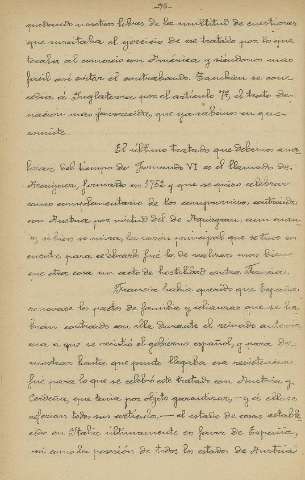 -76-
quedando nosotros libres de la multitud de cuestiones
que suscitaba el ejercicio de ese tratado por lo que
tocaba al comercio con America y siendonos mas
facil asi evitar el contrabando. Tambien se con-
cedia á Inglaterra por el articulo 7º, el trato de
nacion mas favorecida, que ya sabemos en que
consiste.
El último tratado que debemos ana-
lizar del tiempo de Fernando VI es el llamado de
Aranjuez, firmado en 1752 y que se quiso celebrar
como complementario de los compromisos contraidos
con Austria por virtud del de Aquisgran, aun cuan-
do si bien se mira, la razon principal que se tuvo en
cuenta para celebrarlo fué la de realizar mas bien
que otra cosa un acto de hostilidad contra Francia.
Francia habia querido que España
renovase los pactos de familia y alianzas que se ha-
bian contraido con ella durante el reinado anterior
mas a que se resistia el gobierno español, y para de-
mostrar hasta que punto llegaba esa resistencia
fué para lo que se celebró este tratado con Austria y
Cerdeña, que tenia por objeto garantizar, —y á ello se
referian todos sus articulos,— el estado de cosas estable-
cido en Italia últimamente en favor de España,
asi como la posesion de todos los estados de Austria